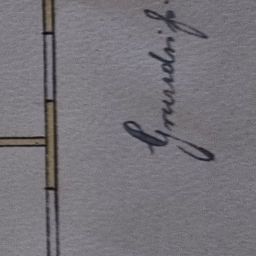 Grundriß.